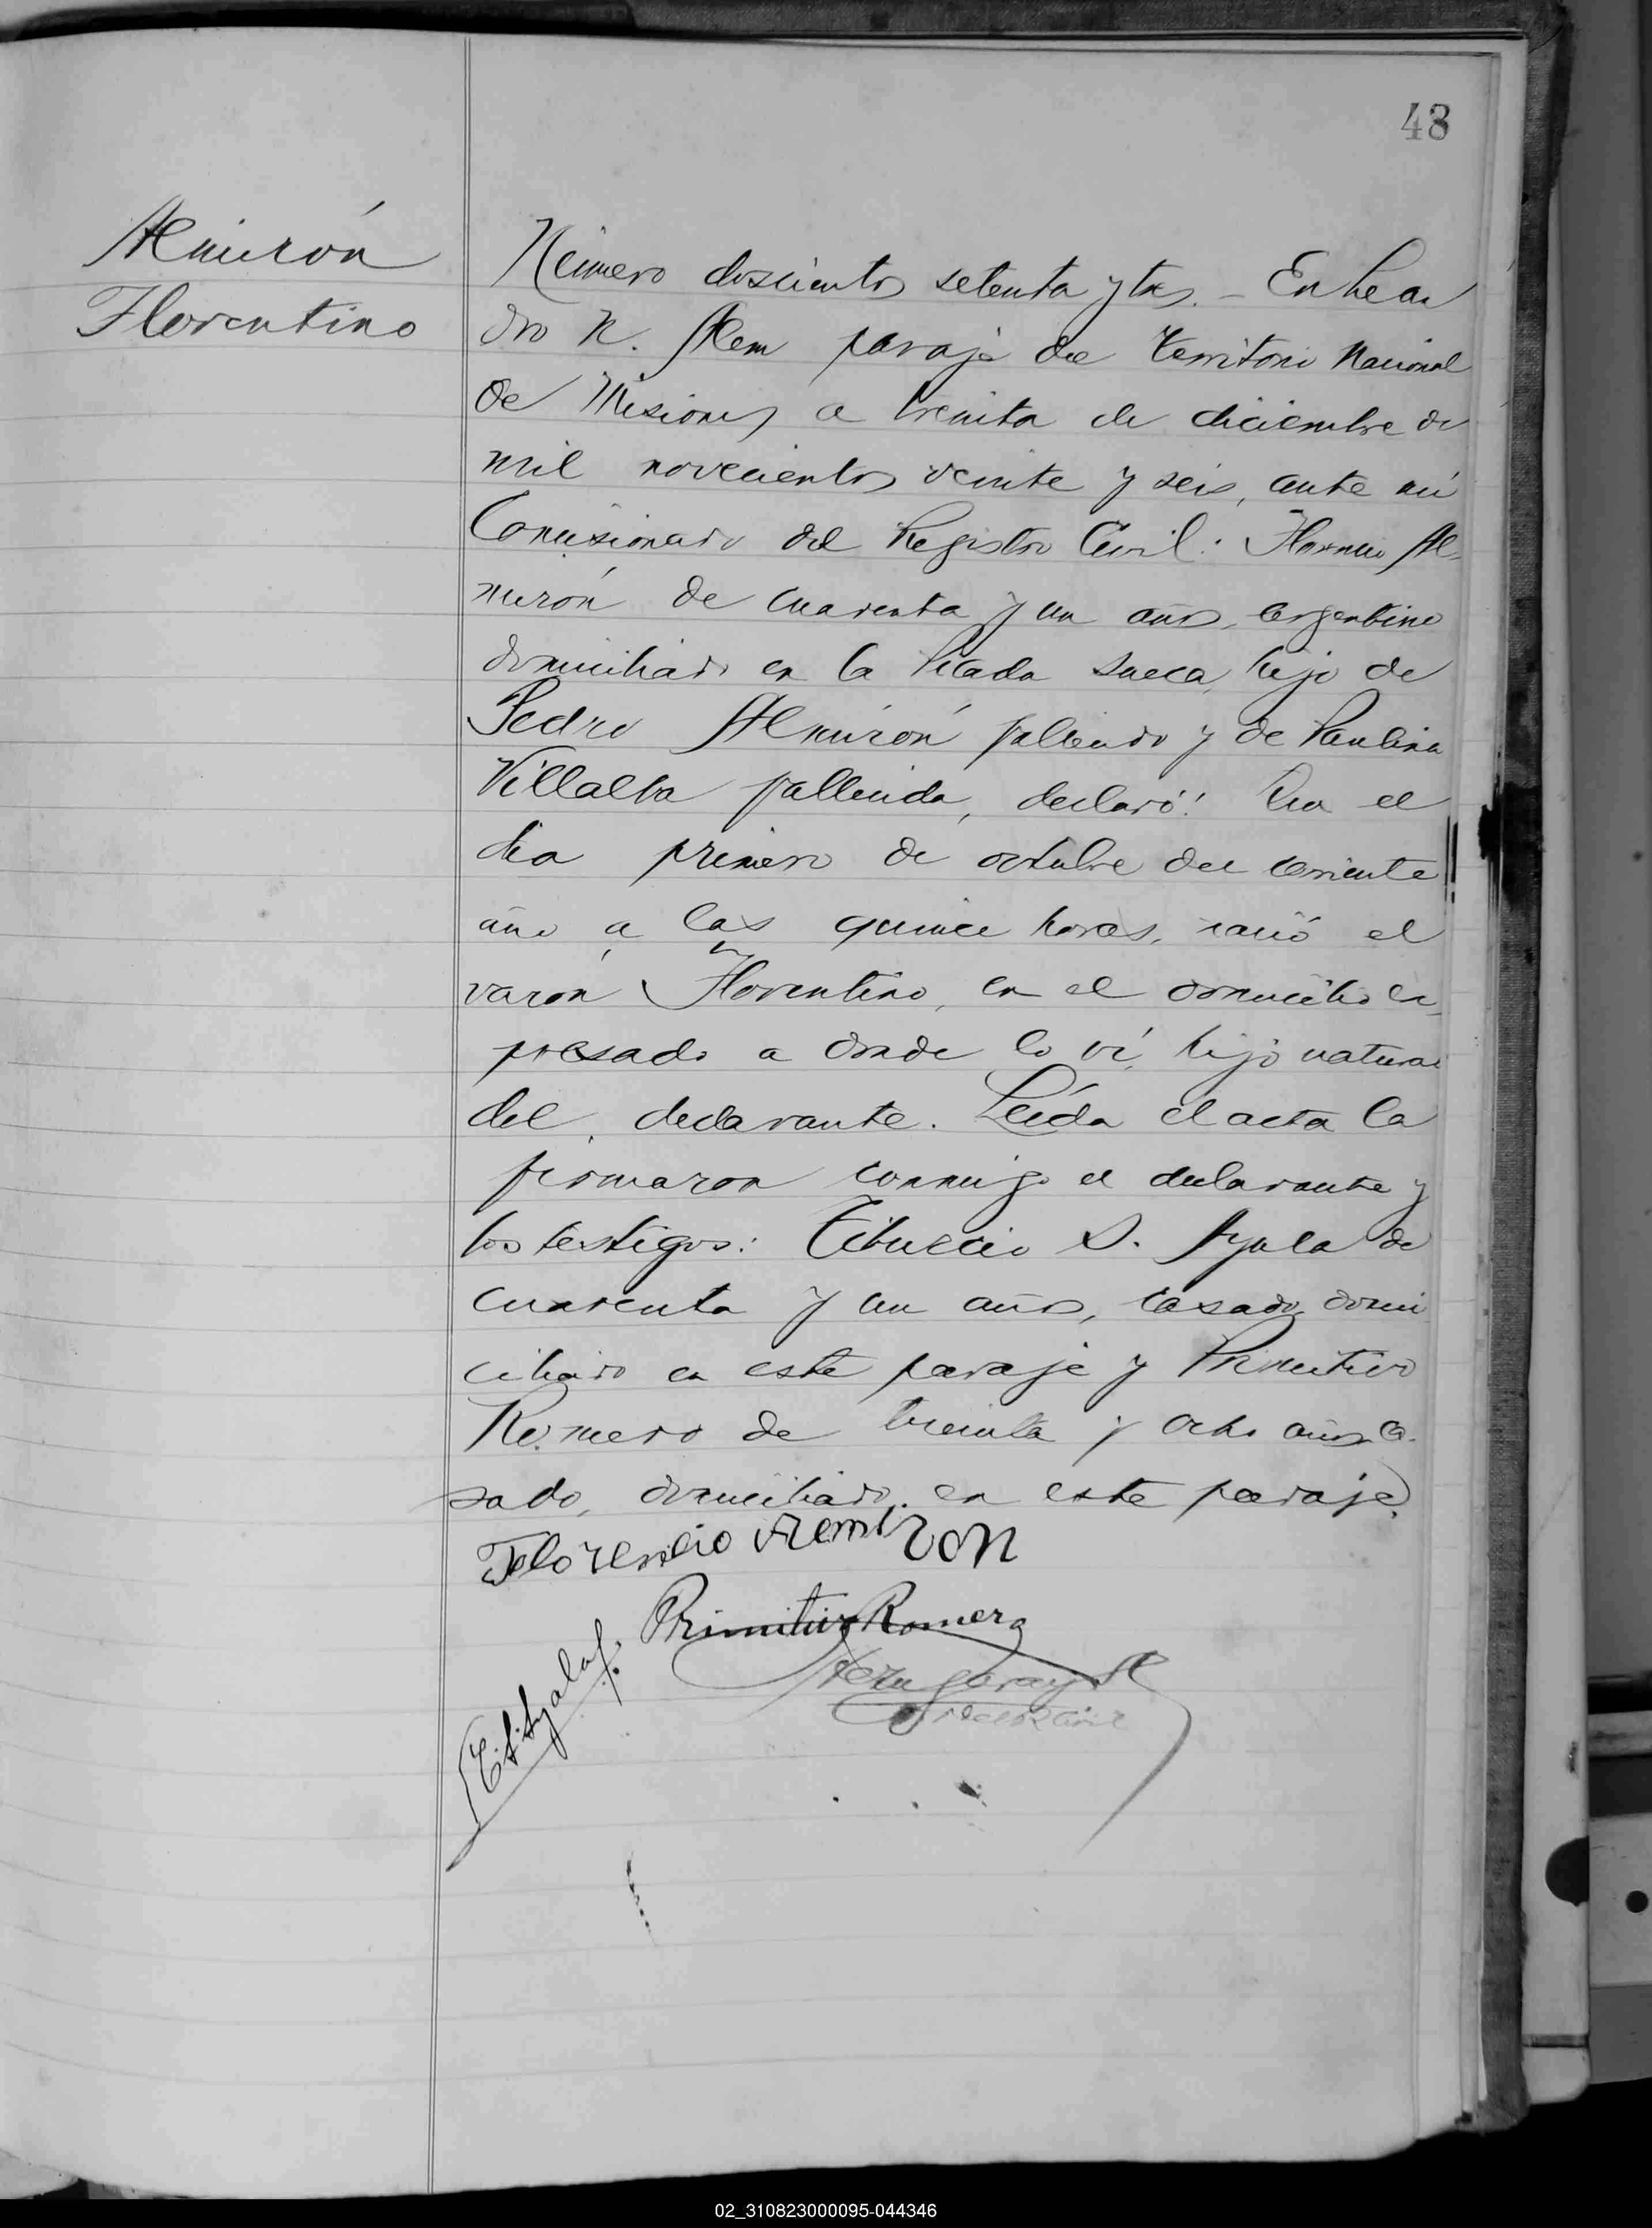 48
Almirón
Florentino
Número doscientos setenta y tres. – En Lean
dro N. Alem paraje del Territorio Nacional
de Misiones a treinta de diciembre de
mil novecientos veinte y seis, ante mí
Comisionado del Registro Civil: Florencio Al-
mirón de cuarenta y un años, argentino
domiciliado en la Picada Sueca, hijo de
Pedro Almirón fallecido y de Paulina
Villalba fallecida, declaró: Que el
día primero de octubre del corriente
año a las quince horas, nació el
varón Florentino, en el domicilio ex-
presado a donde lo ví, hijo natural
del declarante. Leída el acta la
firmaron conmigo el declarante y
los testigos: Tiburcio S. Ayala de
cuarenta y un años, casado, domi
ciliado en este paraje y Primitivo
Romero de treinta y ocho años ca-
sado, domiciliado en este paraje.
Florencio Almiron
Primitivo Romero
Ayala
02_310823000095-044346